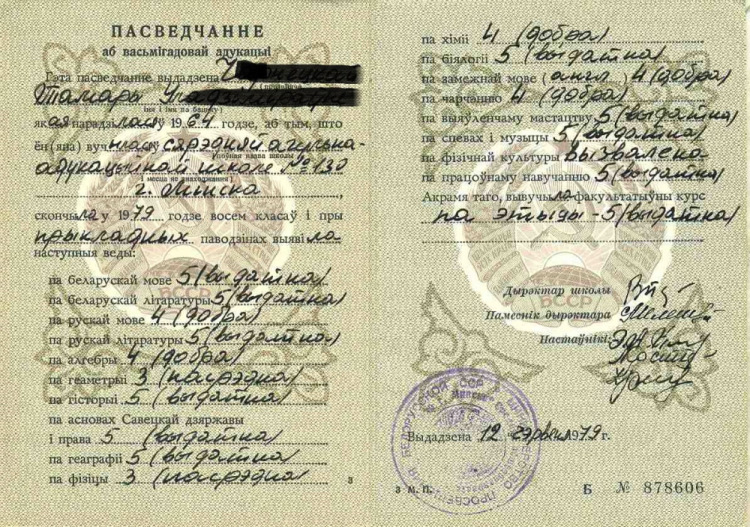 ПАСВЕДЧАННЕ
аб васьмігадовай адукацыі
Гэта пасведчанне выдадзена
Тамары
(імя і імя па бацьку)
якая нарадзілася у 1964 годзе, аб тым, што
ён(яна) вучылася у сярэдняй агульна-
(поўная назва школы
адукацыйнай школе № 130
і месца яе знаходжання)
г. Мінска
скончыла у 1979 годзе восем класаў і пры
прыкладных паводзінах выявіла
наступныя веды:
па беларускай мове 5 (выдатна)
па беларускай літаратуры 5 (выдатна)
па рускай мове 4 (добра)
па рускай літаратуры 5 (выдатна)
па алгебры 4 (добра)
па геаметрыі 3 (пасрэдна)
па гісторыі 5 (выдатна)
па асновах Савецкай дзяржавы
і права 5 (выдатна)
па геаграфіі 5 (выдатна)
па фізіцы 3 (пасрэдна)
з
па хіміі 4 (добра)
па біялогіі 5 (выдатна)
па замежнай мове (англ.) 4 (добра)
па чарчэнню 4 (добра)
па выяўленчаму мастацтву 5 (выдатна)
па спевах і музыцы 5 (выдатна)
па фізічнай культуры вызвалена
па працоўнаму навучанню 5 (выдатна)
Акрамя таго, вывучыла факультатыўны курс
па этыцы - 5 (выдатна)
БССР
БССР
Дырэктар школы
Памеснік дырэктара
Настаўнікі:
Выдадзена 12 чэрвеня 1979 г.
з М. П.
Б № 878606